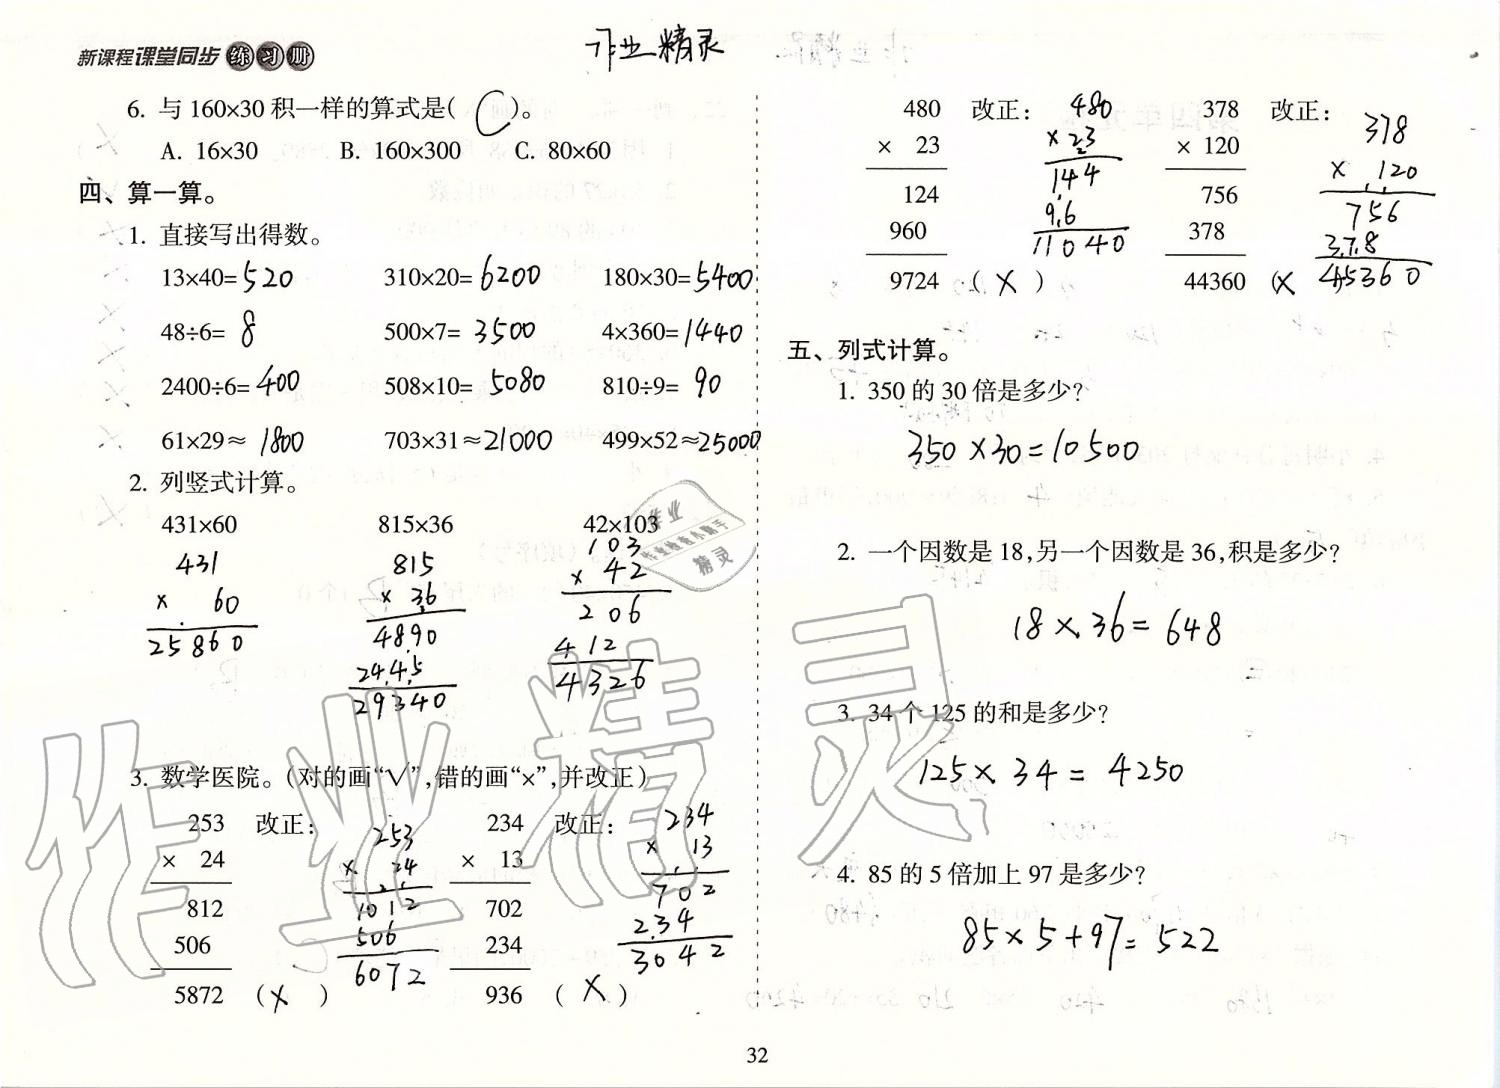 新课程课堂同步练习册
作业精灵
6. 与160×30积一样的算式是( C )。
A. 16×30 B. 160×300 C. 80×60
四、算一算。
1. 直接写出得数。
13×40=520 310×20=6200 180×30=5400
48÷6=8 500×7=3500 4×360=1440
2400÷6=400 508×10=5080 810÷9=90
61×29≈1800 703×31≈21000 499×52≈25000
2. 列竖式计算。
431×60 815×36 42×103
431 815 103
× 60 × 36 × 42
25860 4890 206
2445 412
29340 4326
3. 数学医院。(对的画“√”,错的画“×”,并改正)
253 改正: 253 234 改正: 234
× 24 × 24 × 13 × 13
812 1012 702 702
506 506 234 234
5872 ( × ) 6072 936 ( × ) 3042
480 改正: 480 378 改正: 378
× 23 × 23 × 120 × 120
124 144 756 756
960 96 378 378
9724 ( × ) 11040 44360 ( × 45360
五、列式计算。
1. 350的30倍是多少?
350×30=10500
2. 一个因数是18,另一个因数是36,积是多少?
18×36=648
3. 34个125的和是多少?
125×34=4250
4. 85的5倍加上97是多少?
85×5+97=522
32
作业精灵
作业
精灵